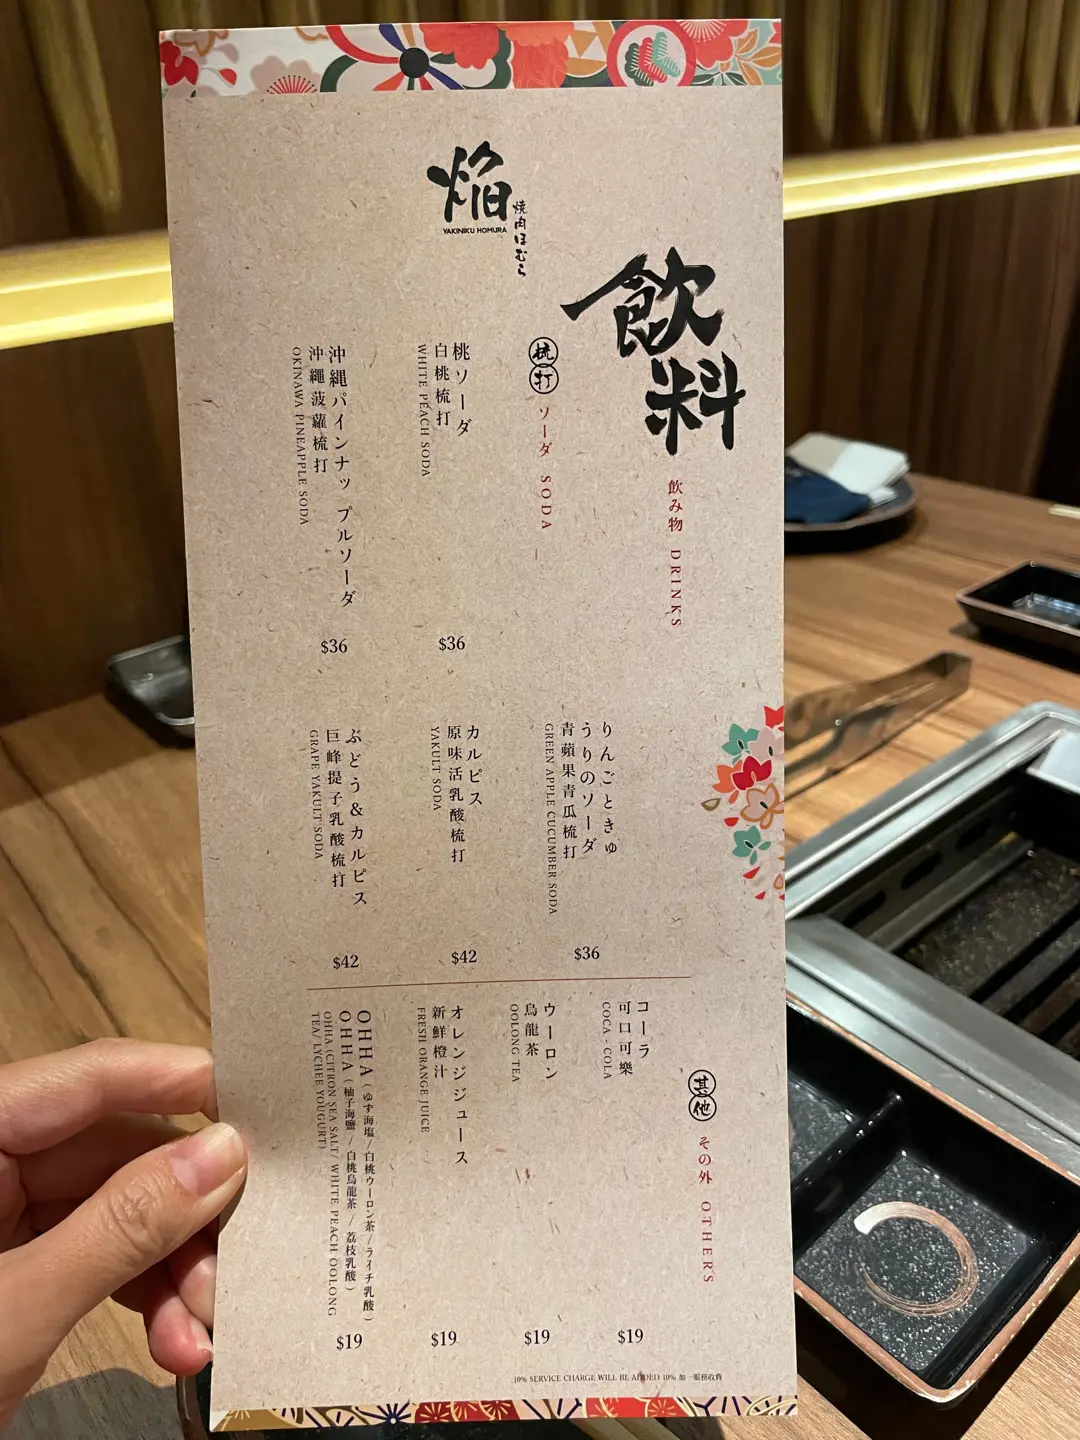 焔
YAKINIKU HOMURA
焼肉ほむら
飲料
飲み物 DRINKS
梳打 ソーダ SODA
桃ソーダ
白桃梳打
WHITE PEACH SODA
$36
沖縄パインナップルソーダ
沖繩菠蘿梳打
OKINAWA PINEAPPLE SODA
$36
りんごときゅ
うりのソーダ
青蘋果青瓜梳打
GREEN APPLE CUCUMBER SODA
$36
カルピス
原味活乳酸梳打
YAKULT SODA
$42
ぶどう&カルピス
巨峰提子乳酸梳打
GRAPE YAKULT SODA
$42
其他 その外 OTHERS
コーラ
可口可樂
COCA-COLA
$19
ウーロン
烏龍茶
OOLONG TEA
$19
オレンジジュース
新鮮橙汁
FRESH ORANGE JUICE
$19
OHHA(ゆず海塩/白桃ウーロン茶/ライチ乳酸)
OHHA(柚子海鹽/白桃烏龍茶/荔枝乳酸)
OHHA (CITRON SEA SALT/ WHITE PEACH OOLONG
TEA/ LYCHEE YOUGURT)
$19
10% SERVICE CHARGE WILL BE ADDED 10% 加一服務收費